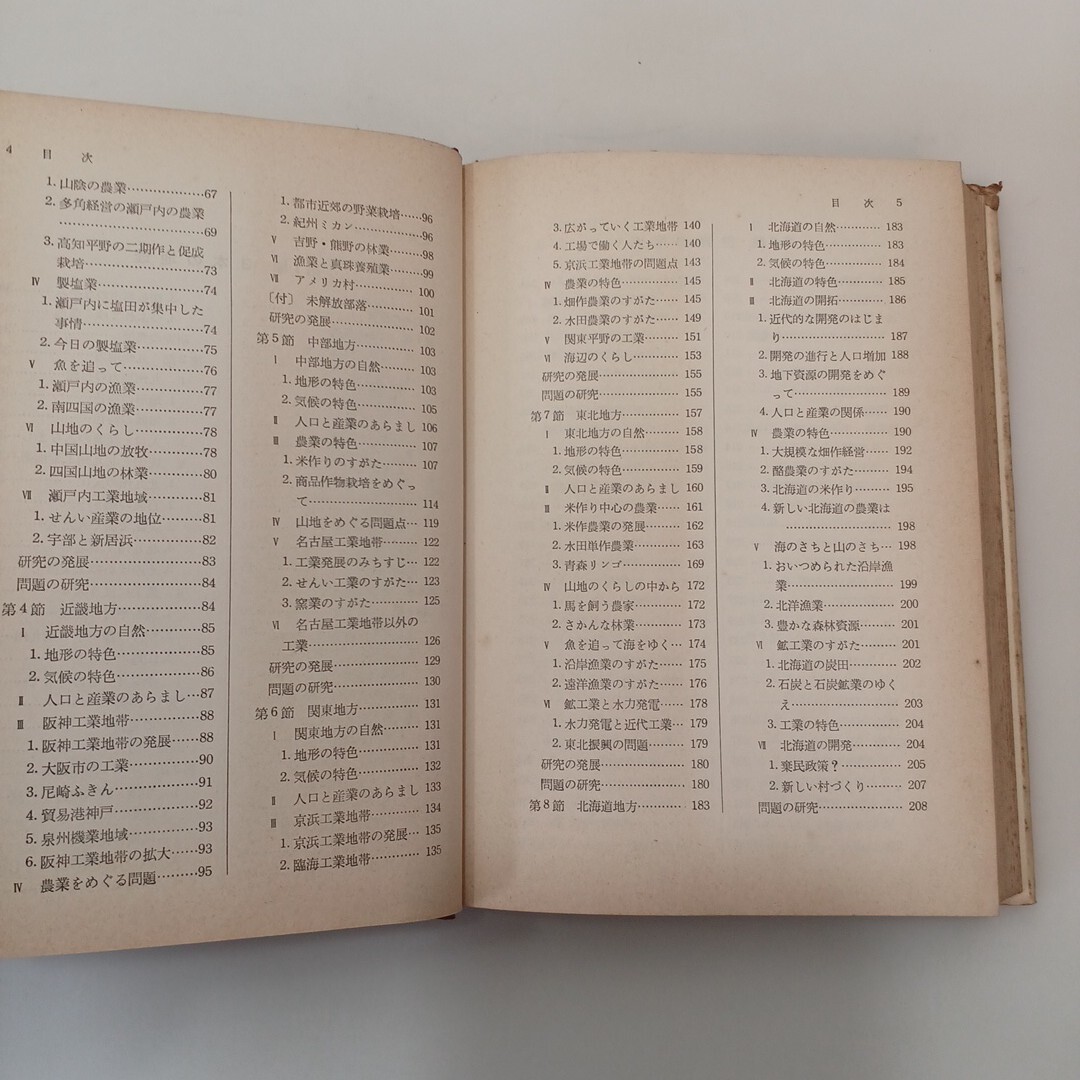 4 目 次
1. 山陰の農業………………67
2. 多角経営の瀬戸内の農業
……………………………69
3. 高知平野の二期作と促成
栽培………………………73
Ⅳ 製塩業……………………74
1. 瀬戸内に塩田が集中した
事情………………………74
2. 今日の製塩業……………75
Ⅴ 魚を追って………………76
1. 瀬戸内の漁業……………77
2. 南四国の漁業……………77
Ⅵ 山地のくらし……………78
1. 中国山地の放牧…………78
2. 四国山地の林業…………80
Ⅶ 瀬戸内工業地域…………81
1. せんい産業の地位………81
2. 宇部と新居浜……………82
研究の発展…………………83
問題の研究…………………84
第4節 近畿地方……………84
Ⅰ 近畿地方の自然…………85
1. 地形の特色………………85
2. 気候の特色………………86
Ⅱ 人口と産業のあらまし…87
Ⅲ 阪神工業地帯……………88
1. 阪神工業地帯の発展……88
2. 大阪市の工業……………90
3. 尼崎ふきん………………91
4. 貿易港神戸………………92
5. 泉州機業地域……………93
6. 阪神工業地帯の拡大……93
Ⅳ 農業をめぐる問題………95
1. 都市近郊の野菜栽培……96
2. 紀州ミカン………………96
Ⅴ 吉野・熊野の林業………98
Ⅵ 漁業と真珠養殖業………99
Ⅶ アメリカ村………………100
〔付〕 未解放部落…………101
研究の発展…………………102
第5節 中部地方……………103
Ⅰ 中部地方の自然…………103
1. 地形の特色………………103
2. 気候の特色………………105
Ⅱ 人口と産業のあらまし 106
Ⅲ 農業の特色………………107
1. 米作りのすがた…………107
2. 商品作物栽培をめぐっ
て…………………………114
Ⅳ 山地をめぐる問題点…119
Ⅴ 名古屋工業地帯…………122
1. 工業発展のみちすじ…122
2. せんい工業のすがた…123
3. 窯業のすがた……………125
Ⅵ 名古屋工業地帯以外の
工業………………………126
研究の発展…………………129
問題の研究…………………130
第6節 関東地方……………131
Ⅰ 関東地方の自然…………131
1. 地形の特色………………131
2. 気候の特色………………132
Ⅱ 人口と産業のあらまし 133
Ⅲ 京浜工業地帯……………134
1. 京浜工業地帯の発展…135
2. 臨海工業地帯……………135
目 次 5
3. 広がっていく工業地帯 140
4. 工場で働く人たち……140
5. 京浜工業地帯の問題点 143
Ⅳ 農業の特色………………145
1. 畑作農業のすがた……145
2. 水田農業のすがた……149
Ⅴ 関東平野の工業…………151
Ⅵ 海辺のくらし……………153
研究の発展…………………155
問題の研究…………………155
第7節 東北地方……………157
Ⅰ 東北地方の自然…………158
1. 地形の特色………………158
2. 気候の特色………………159
Ⅱ 人口と産業のあらまし 160
Ⅲ 米作り中心の農業………161
1. 米作農業の発展…………162
2. 水田単作農業……………163
3. 青森リンゴ………………169
Ⅳ 山地のくらしの中から 172
1. 馬を飼う農家……………172
2. さかんな林業……………173
Ⅴ 魚を追って海をゆく…174
1. 沿岸漁業のすがた……175
2. 遠洋漁業のすがた……176
Ⅵ 鉱工業と水力発電………178
1. 水力発電と近代工業…179
2. 東北振興の問題…………179
研究の発展…………………180
問題の研究…………………180
第8節 北海道地方…………183
Ⅰ 北海道の自然……………183
1. 地形の特色………………183
2. 気候の特色………………184
Ⅱ 北海道の特色……………185
Ⅲ 北海道の開拓……………186
1. 近代的な開発のはじま
り…………………………187
2. 開発の進行と人口増加 188
3. 地下資源の開発をめぐ
って………………………189
4. 人口と産業の関係………190
Ⅳ 農業の特色………………190
1. 大規模な畑作経営………192
2. 酪農業のすがた…………194
3. 北海道の米作り…………195
4. 新しい北海道の農業は
……………………………198
Ⅴ 海のさちと山のさち…198
1. おいつめられた沿岸漁
業…………………………199
2. 北洋漁業…………………200
3. 豊かな森林資源…………201
Ⅵ 鉱工業のすがた…………201
1. 北海道の炭田……………202
2. 石炭と石炭鉱業のゆく
え…………………………203
3. 工業の特色………………204
Ⅶ 北海道の開発……………204
1. 棄民政策?………………205
2. 新しい村づくり…………207
問題の研究…………………208